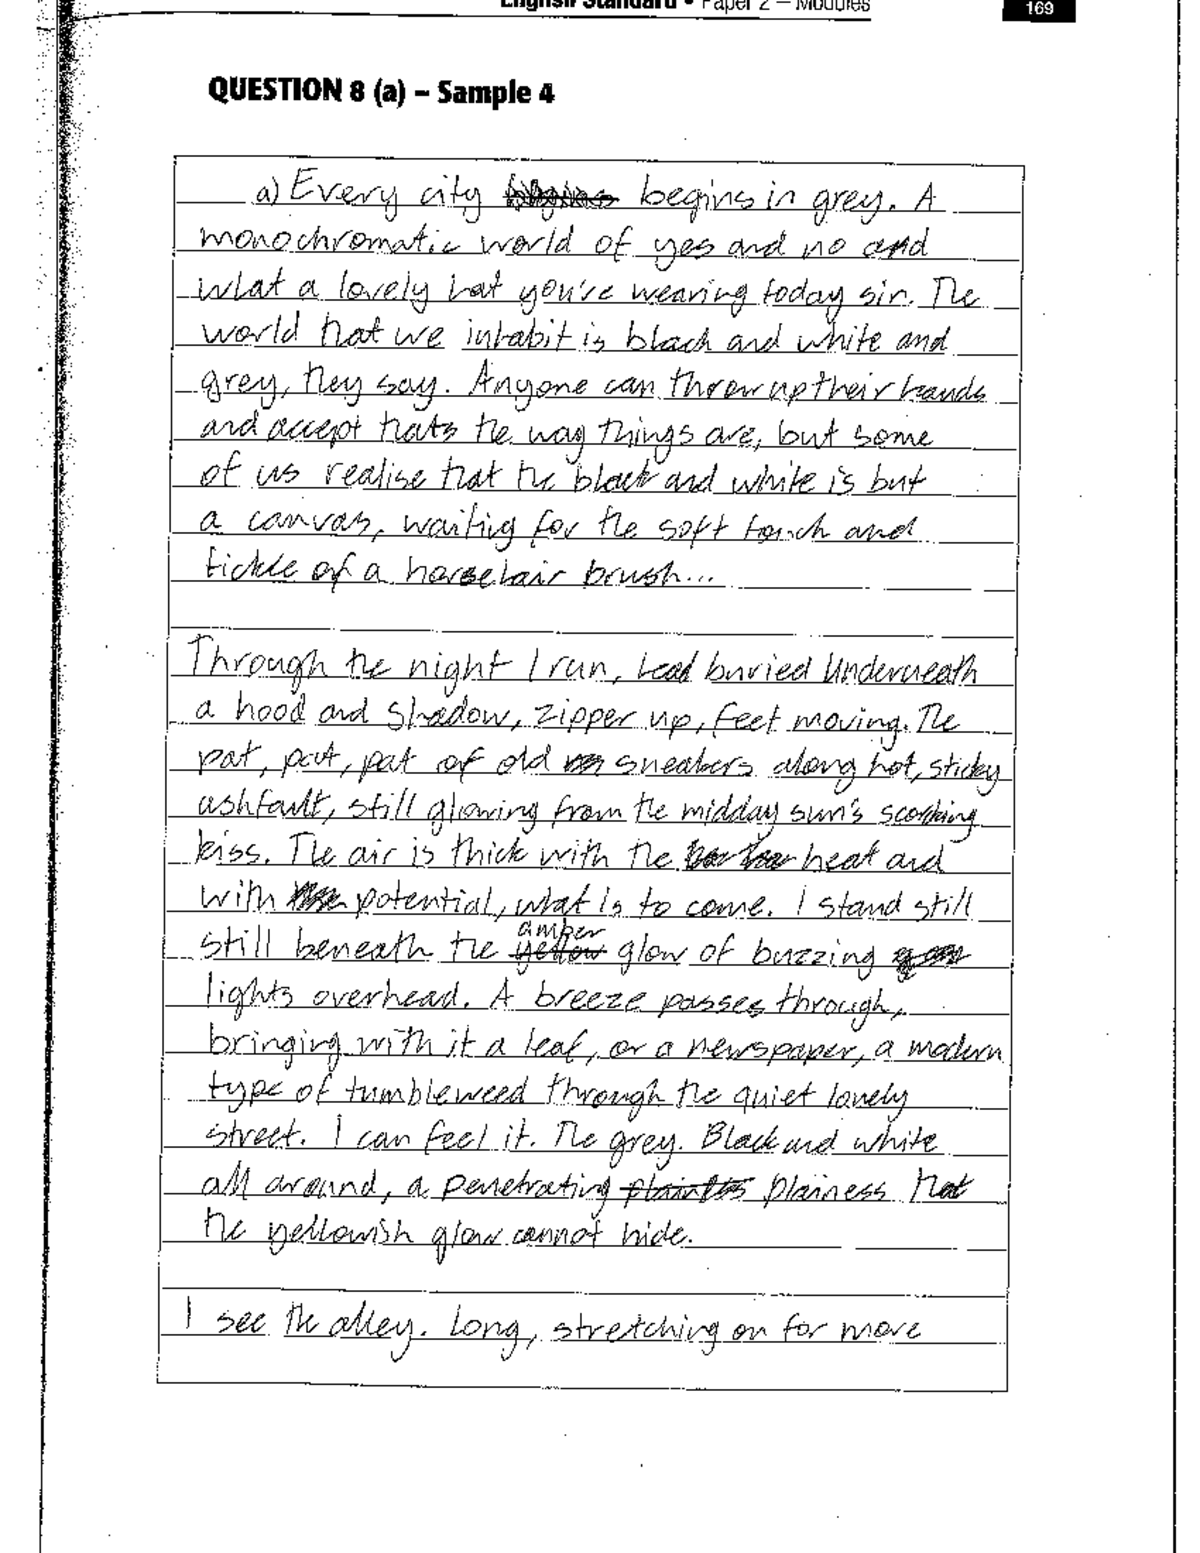 English Standard • Paper 2 – Modules
169
QUESTION 8 (a) – Sample 4
a) Every city begins in grey. A
monochromatic world of yes and no and
what a lovely hat you're wearing today sir. The
world that we inhabit is black and white and
grey, they say. Anyone can throw up their hands
and accept thats the way things are, but some
of us realise that the black and white is but
a canvas, waiting for the soft touch and
tickle of a horsehair brush...
Through the night I run, head buried underneath
a hood and shadow, zipper up, feet moving. The
pat, pat, pat of old sneakers along hot, sticky
ashfault, still glowing from the midday sun's scorching
kiss. The air is thick with the heat and
with potential, what is to come. I stand still
still beneath the amber glow of buzzing
lights overhead. A breeze passes through,
bringing with it a leaf, or a newspaper, a modern
type of tumbleweed through the quiet lonely
street. I can feel it. The grey. Black and white
all around, a penetrating plainess that
the yellowish glow cannot hide.
I see the alley. Long, stretching on for more